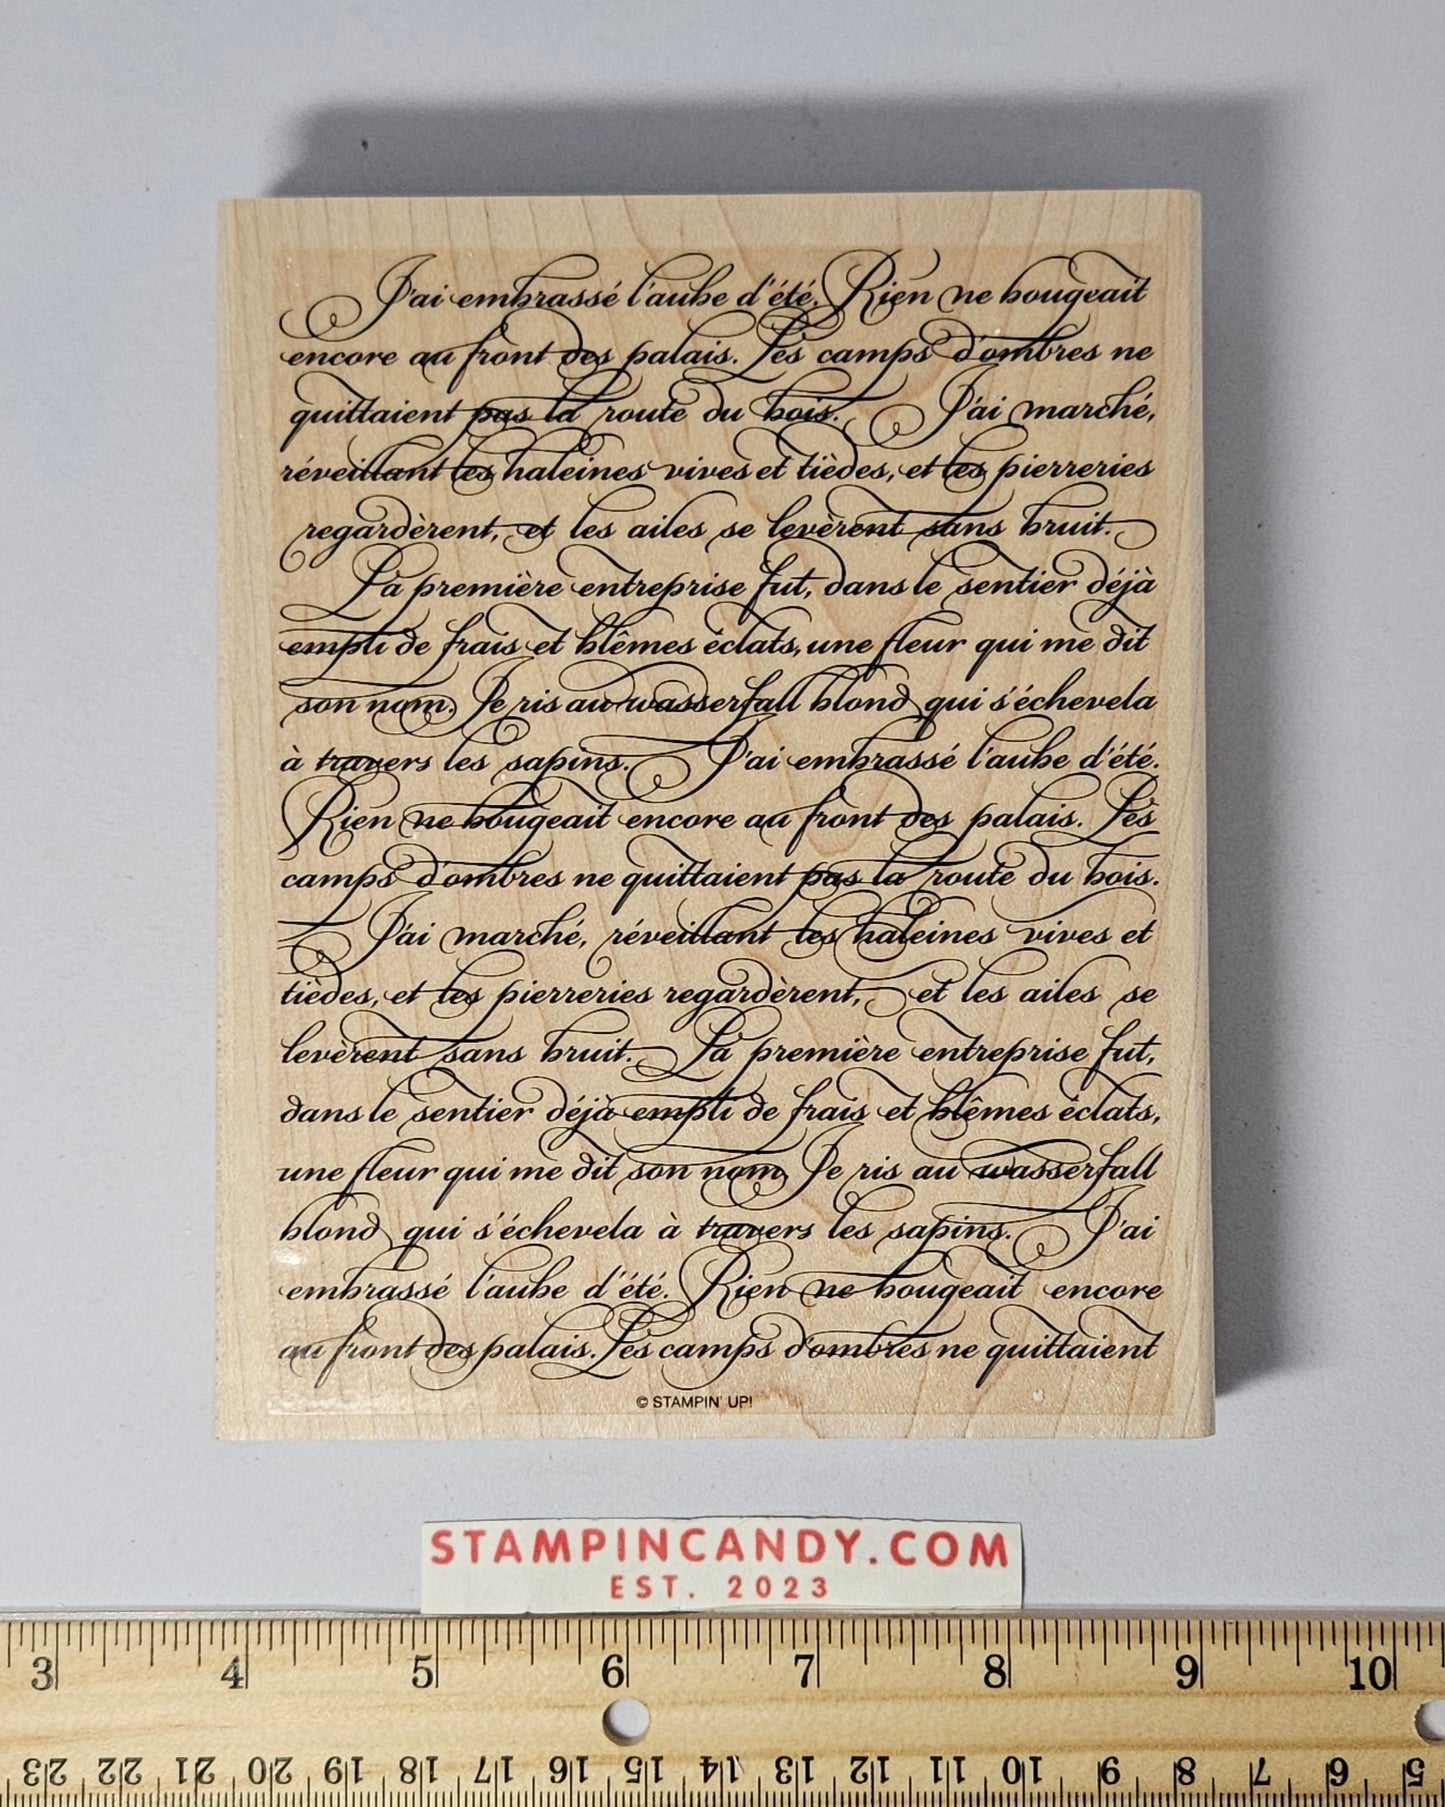 J'ai embrassé l'aube d'été. Rien ne bougeait
encore au front des palais. Les camps d'ombres ne
quittaient pas la route du bois. J'ai marché,
réveillant les haleines vives et tièdes, et les pierreries
regardèrent, et les ailes se levèrent sans bruit.
La première entreprise fut, dans le sentier déjà
empli de frais et blêmes éclats, une fleur qui me dit
son nom. Je ris au wasserfall blond qui s'échevela
à travers les sapins. J'ai embrassé l'aube d'été.
Rien ne bougeait encore au front des palais. Les
camps d'ombres ne quittaient pas la route du bois.
J'ai marché, réveillant les haleines vives et
tièdes, et les pierreries regardèrent, et les ailes se
levèrent sans bruit. La première entreprise fut,
dans le sentier déjà empli de frais et blêmes éclats,
une fleur qui me dit son nom. Je ris au wasserfall
blond qui s'échevela à travers les sapins. J'ai
embrassé l'aube d'été. Rien ne bougeait encore
au front des palais. Les camps d'ombres ne quittaient
© STAMPIN' UP!
STAMPINCANDY.COM
EST. 2023
3 4 5 6 7 8 9 10
23 22 21 20 19 18 17 16 15 14 13 12 11 10 9 8 7 6 5